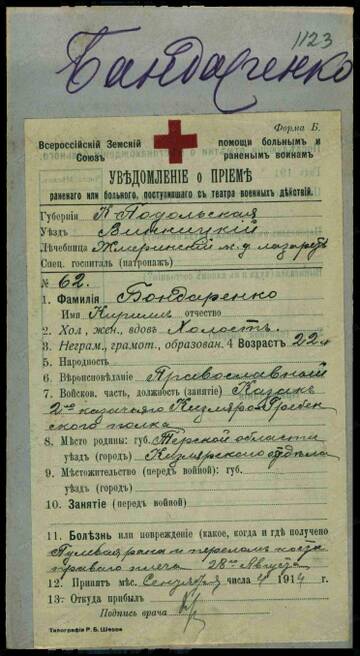 1123
Бандаренко
Форма Б.
Всероссійскій Земскій Союзъ
помощи больнымъ и раненымъ воинамъ
УВѢДОМЛЕНІЕ о ПРІЕМѢ
раненаго или больного, поступившаго съ театра военныхъ дѣйствій.
Губернія Подольская
Уѣздъ Винницкій
Лечебница Жмеринскій ж.д. лазаретъ
Спец. госпиталь (патронажъ)
№ 62.
1. Фамилія Бондаренко
Имя Кириллъ отчество
2. Хол., жен., вдовъ Холостъ.
3. Неграм., грамот., образован. 4 Возрастъ 22 л
5. Народность
6. Вѣроисповѣданіе Православный
7. Войсков. часть, должность (занятіе) Казакъ
2го казачьяго Кизляро-Гребен
скаго полка
8. Мѣсто родины: губ. Терской области
уѣздъ (городъ) Кизлярскаго отдѣла
9. Мѣстожительство (передъ войной): губ.
уѣздъ (городъ)
10. Занятіе (передъ войной)
11. Болѣзнь или поврежденіе (какое, когда и гдѣ получено
Пулевая рана и переломъ кости
праваго плеча 28го Августа
12. Принятъ мѣс. Сентября числа 4 1914 г.
13. Откуда прибылъ
Подпись врача
Типографія Р. Б. Шерръ